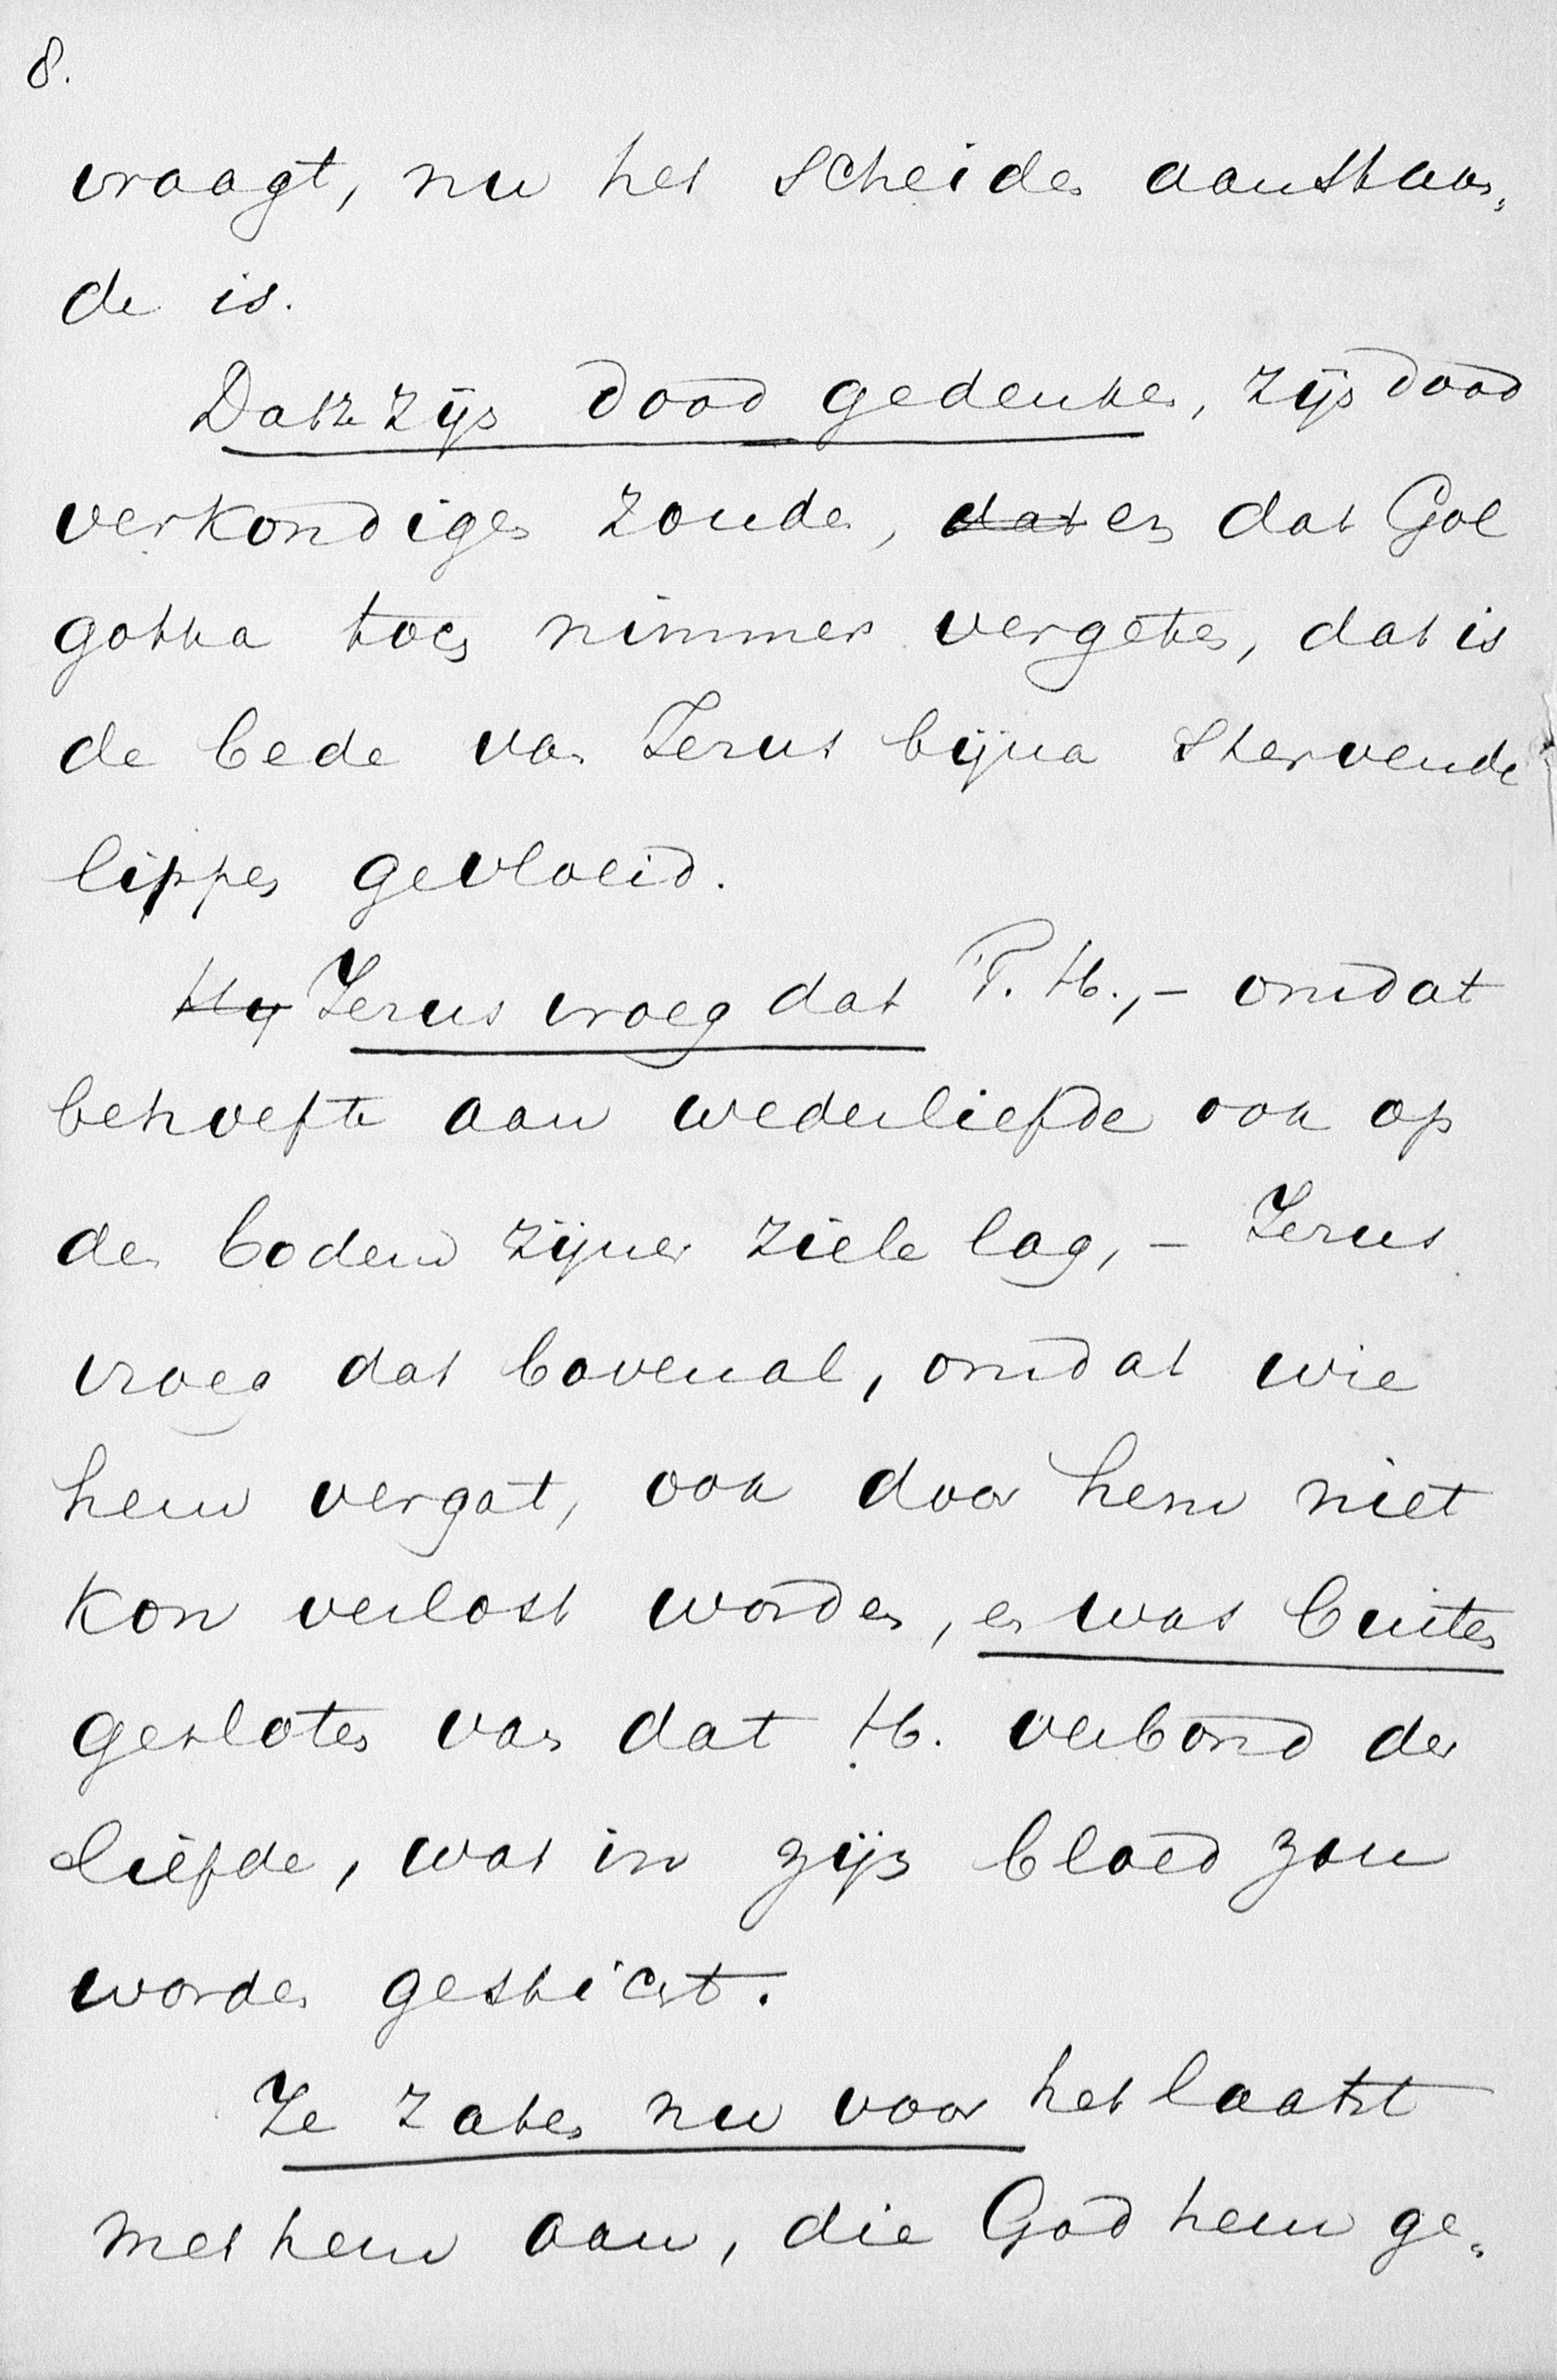 8.
vraagt, nu het scheiden aanstaan„
de is.
Dat ze zijn dood gedenken, zijn dood
verkondigen zouden, dat en dat Gol
gotha toch nimmer vergeten, dat is
de bede van Jezus bijna stervende
lippen gevloeid.
Hy Jezus vroeg dat T. H., – omdat
behoefte aan wederliefde ook op
den bodem zijner ziele lag, – Jezus
vroeg dat bovenal, omdat wie
hem vergat, ook door hem niet
kon verlost worden, en was buiten
gesloten van dat H. verbond der
liefde, wat in zijn bloed zou
worden gesticht.
Ze zaten nu voor het laatst
met hem aan, die God hem ge„